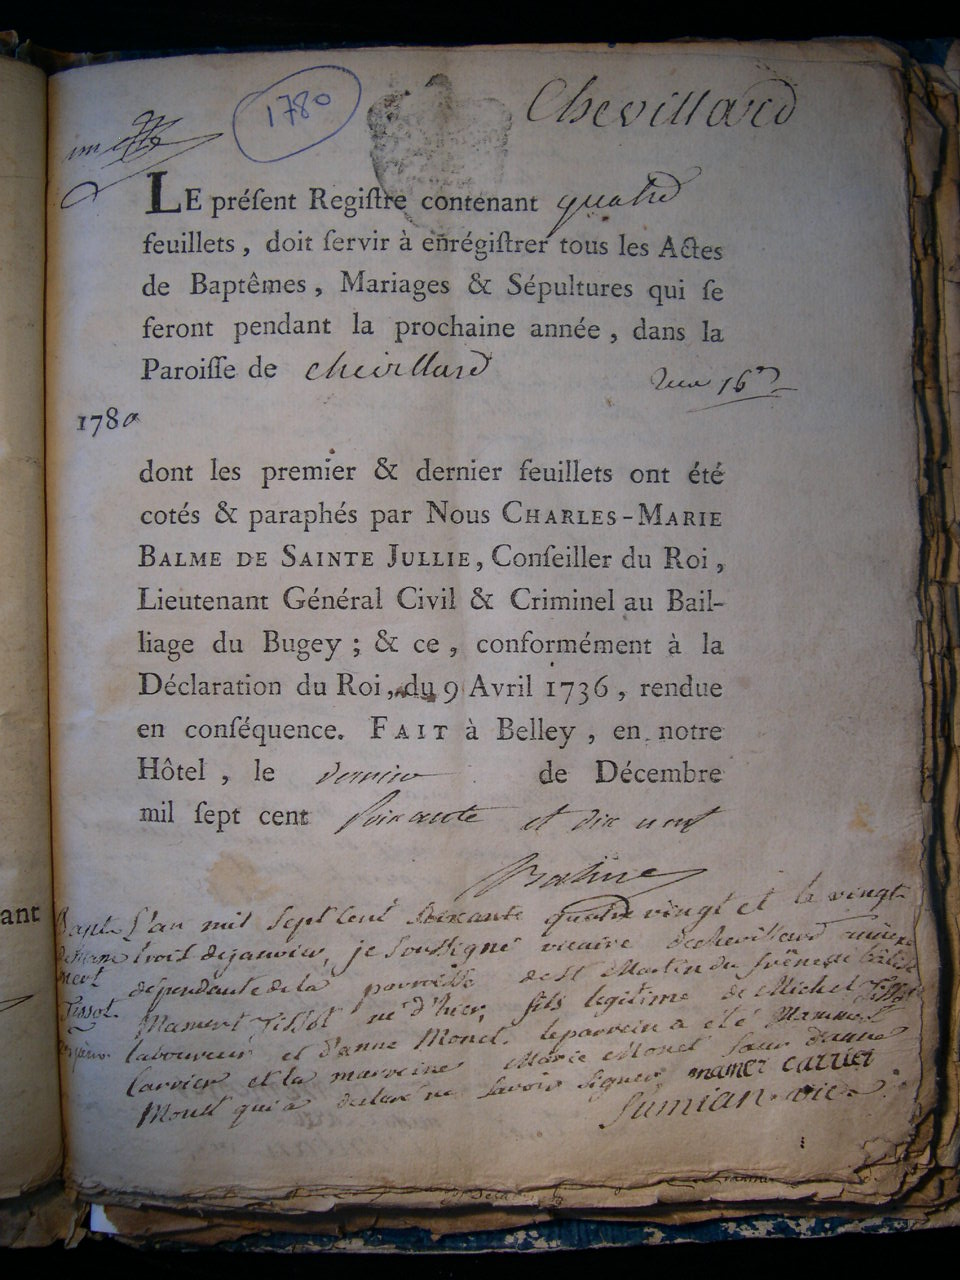 1780
Chevillard
LE préſent Regiſtre contenant quatre
feuillets, doit ſervir à enrégiſtrer tous les Actes
de Baptêmes, Mariages & Sépultures qui ſe
feront pendant la prochaine année, dans la
Paroiſſe de chevillard
16
1780
dont les premier & dernier feuillets ont été
cotés & paraphés par Nous CHARLES-MARIE
BALME DE SAINTE JULLIE, Conſeiller du Roi,
Lieutenant Général Civil & Criminel au Bail-
liage du Bugey; & ce, conformément à la
Déclaration du Roi, du 9 Avril 1736, rendue
en conſéquence. FAIT à Belley, en notre
Hôtel, le dernier de Décembre
mil ſept cent soixante et dix neuf
Balme
ant
Bapt. L'an mil sept cent soixante quatre vingt et le vingt
trois de janvier, je soussigné vicaire de chevillard
dependante de la parroisse de St Martin du frêne
Tissot
Mamert Tissot né d'hier, fils legitime de Michel Tissot
laboureur et d'anne Monet. le parrein a été Mammert
Carrier et la marreine Marie Monet sœur d'anne
Monet qui a declaré ne savoir signer mamer carrier
Sumian vic.